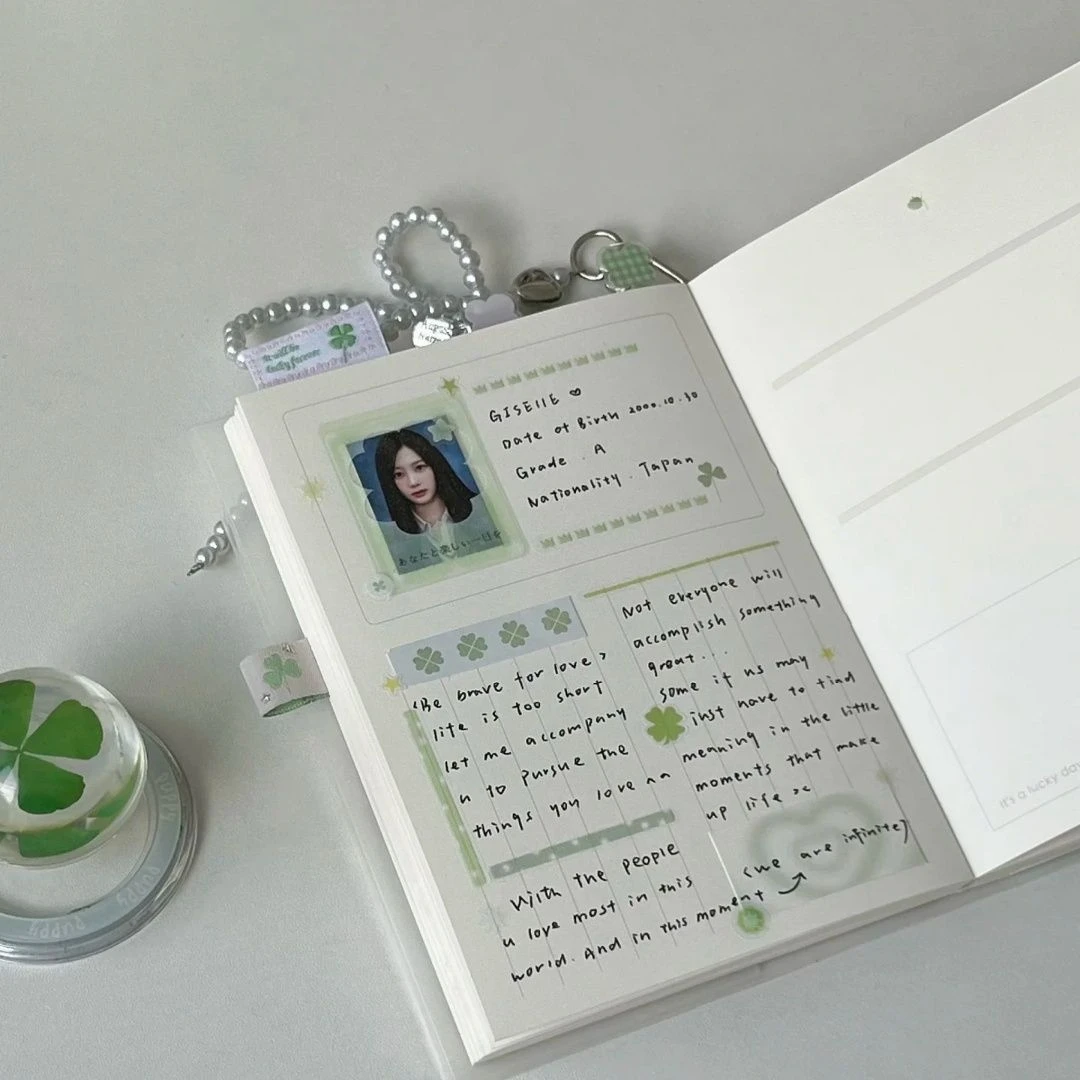 It will be
lucky forever
GISELLE ♡
Date of Birth 2000.10.30
Grade . A
Nationality . Japan
あなたと楽しい一日を
<Be brave for love>
life is too short
let me accompany
u to pursue the
things you love ^^
With the people
u love most in this
world. And in this moment
<we are infinite>
Not everyone will
accomplish something
great...
some if us may
just have to find
meaning in the little
moments that make
up life ><
it's a lucky day
PUPPY
PUPPY